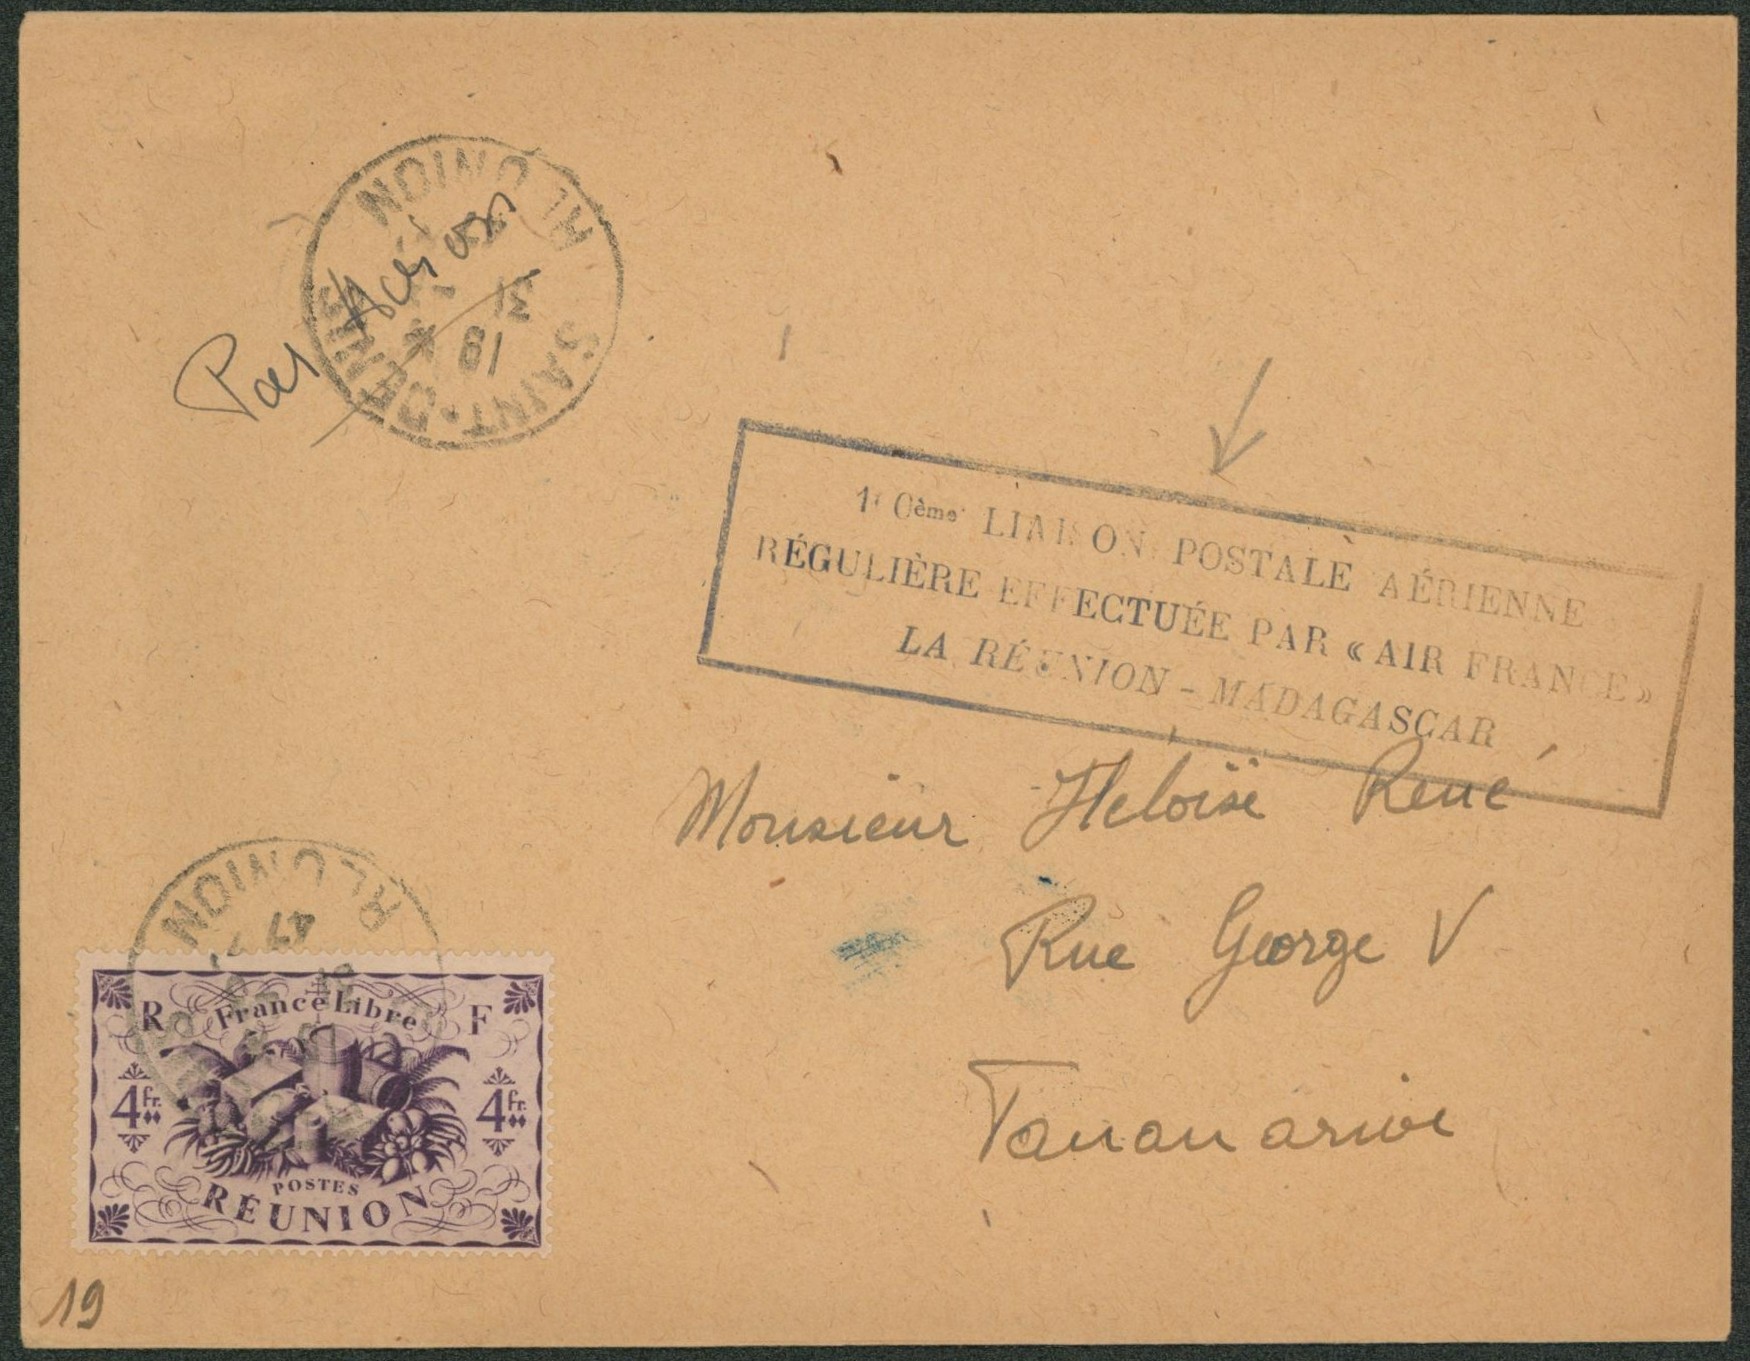 RÉUNION
SAINT-DENIS
19
31
Par Avion
10ème LIAISON POSTALE AÉRIENNE
RÉGULIÈRE EFFECTUÉE PAR « AIR FRANCE »
LA RÉUNION - MADAGASCAR
Monsieur Heloïse René
Rue George V
Tananarive
RÉUNION
R France Libre F
4 fr. 4 fr.
POSTES
RÉUNION
19